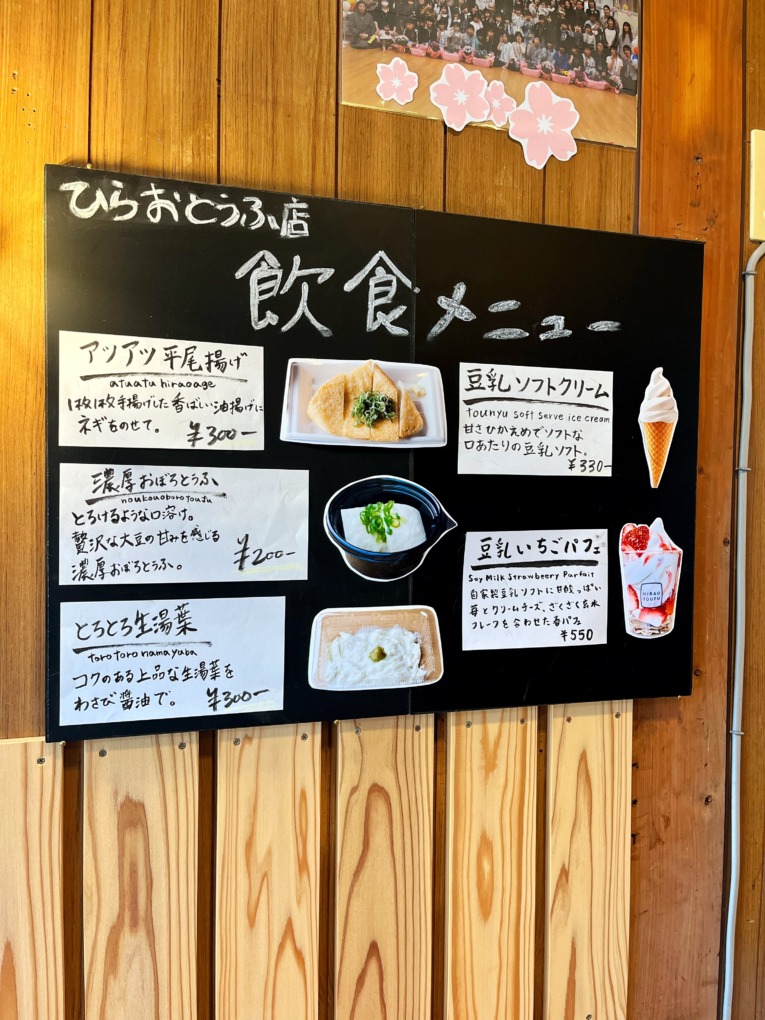 ひらおとうふ店
飲食メニュー
アツアツ平尾揚げ
atuatu hiraoage
1枚1枚手揚げした香ばい油揚げに
ネギをのせて。
¥300-
濃厚おぼろとうふ
noukouoborotoufu
とろけるような口溶け。
贅沢な大豆の甘みを感じる
濃厚おぼろとうふ。
¥200-
とろとろ生湯葉
torotoro namayuba
コクのある上品な生湯葉を
わさび醤油で。
¥300-
豆乳ソフトクリーム
tounyu soft serve ice cream
甘さひかえめでソフトな
口あたりの豆乳ソフト。
¥330-
豆乳いちごパフェ
Soy Milk Strawbeery Parfait
自家製豆乳ソフトに甘酸っぱい
苺とクリームチーズ、ざくざく玄米
フレークを合わせた春パフェ
¥550
HIRAO
TOUFU